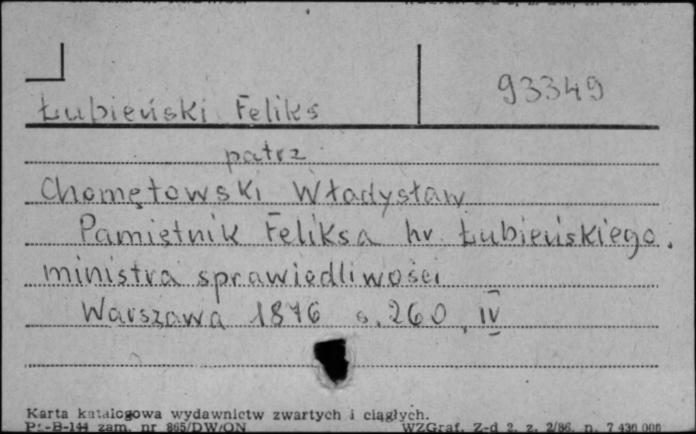 93349
Łubieński Feliks
patrz
Chomętowski Władysław
Pamiętnik Feliksa hr Łubieńskiego.
ministra sprawiedliwości
Warszawa 1876 s. 260, IV
Karta katalogowa wydawnictw zwartych i ciągłych.
Pu-B-144 zam. nr 865/DW/ON WZGraf. Z-d 2. z. 2/86. n. 7 430 000